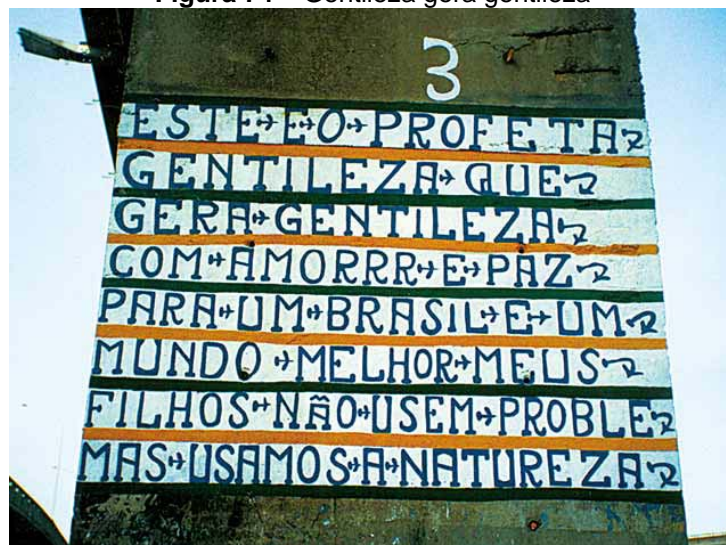 Figura I 1 – Gentileza gera gentileza
3
ESTE E O PROFETA
GENTILEZA QUE
GERA GENTILEZA
COM AMORRR E PAZ
PARA UM BRASIL E UM
MUNDO MELHOR MEUS
FILHOS NÃO USEM PROBLE
MAS USAMOS A NATUREZA